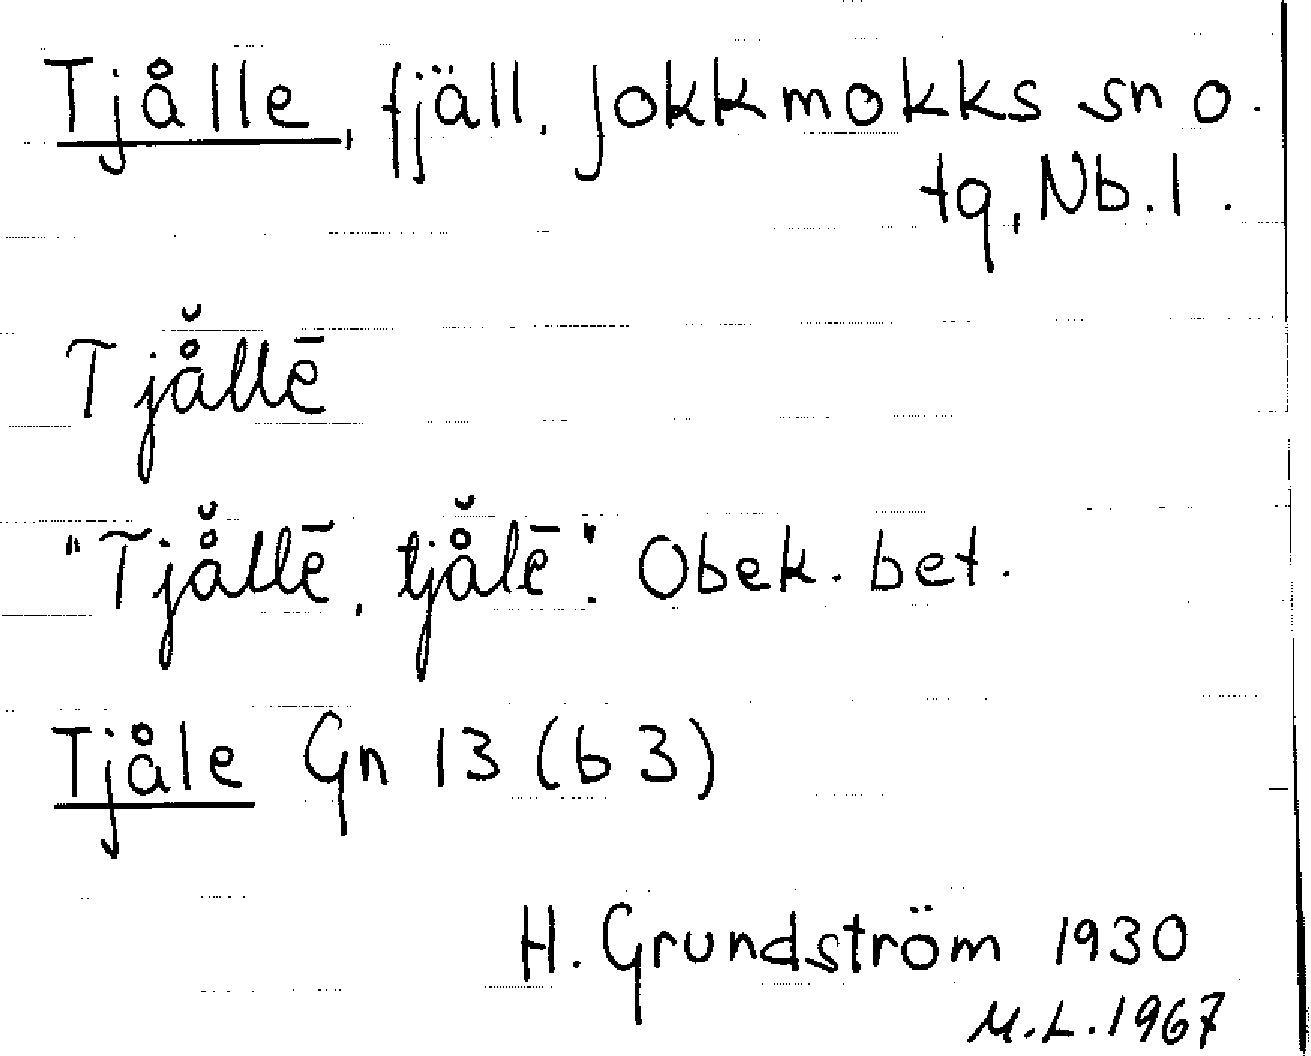 Tjålle, fjäll. Jokkmokks sn o.
tg, Nb. l.
Tjå̆llē
"Tjå̆llē, tjå̆lē". Obek. bet.
Tjåle Gn 13 (b 3)
H. Grundström 1930
M.L. 1967